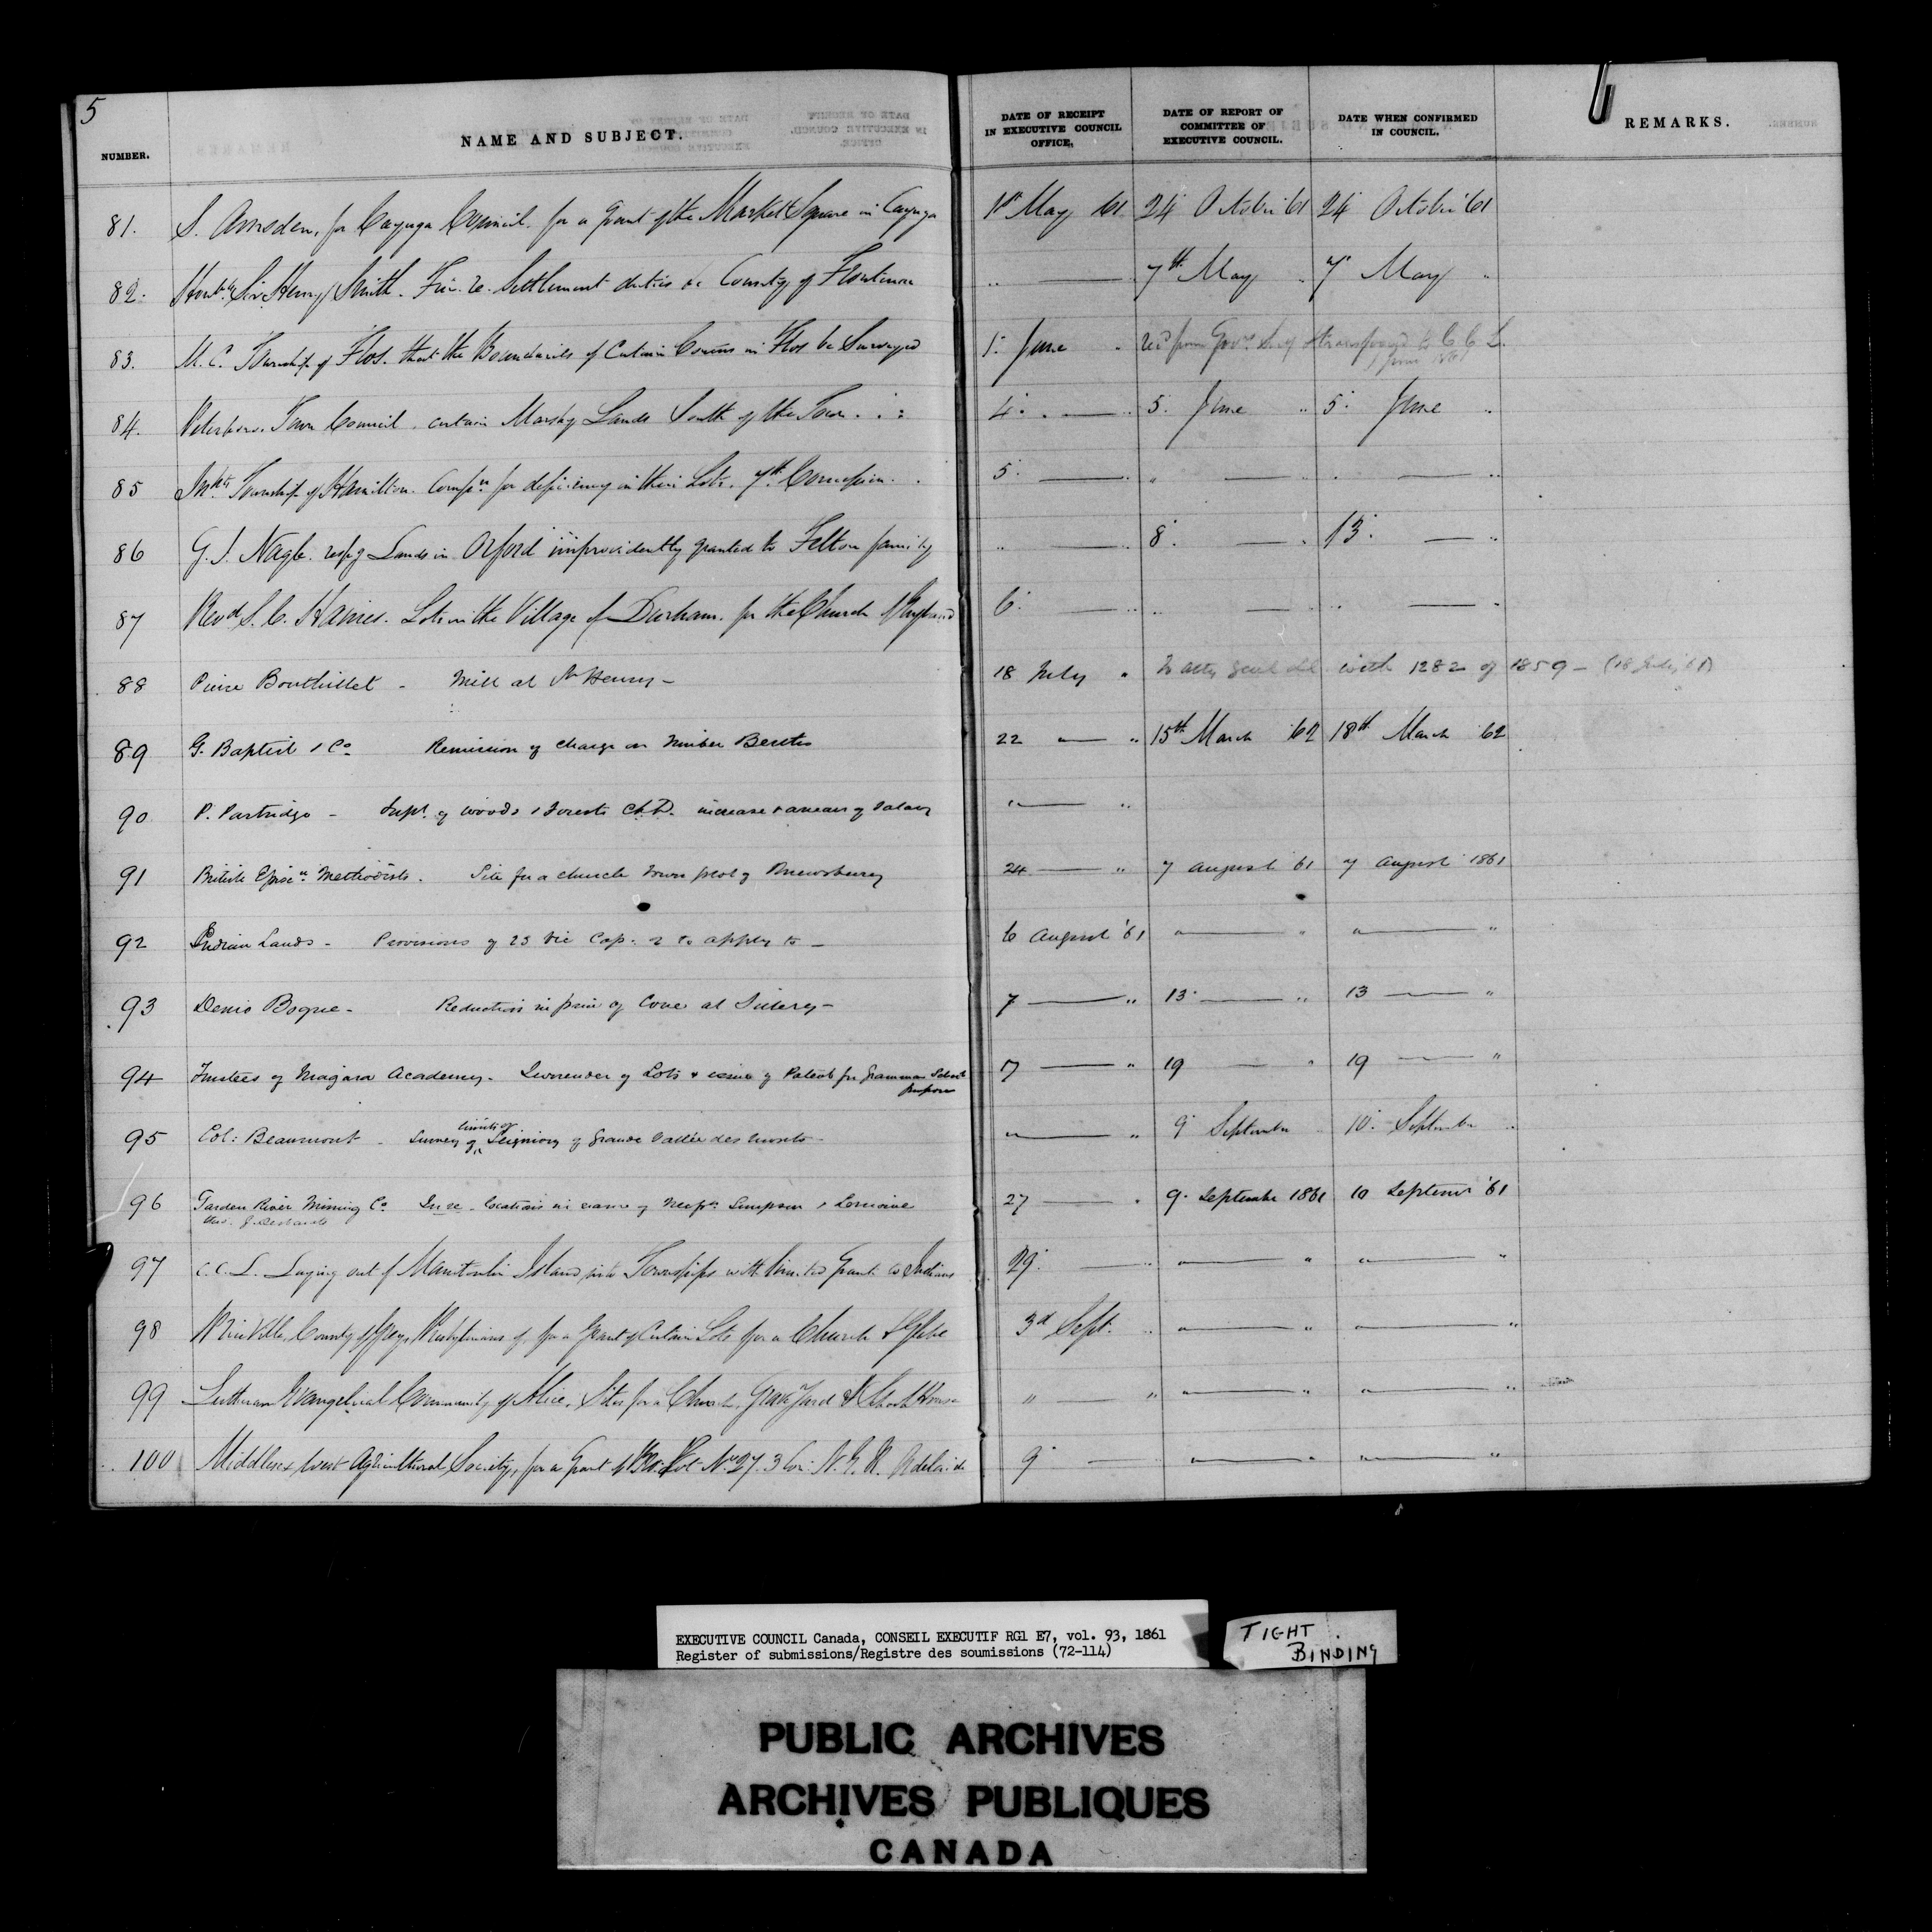 5
NUMBER. NAME AND SUBJECT. DATE OF RECEIPT IN EXECUTIVE COUNCIL OFFICE. DATE OF REPORT OF COMMITTEE OF EXECUTIVE COUNCIL. DATE WHEN CONFIRMED IN COUNCIL. REMARKS.
81. S. Amsden, for Cayuga Council. for a grant of the Market Square in Cayuga 1st May 61 24 October 61 24 October 61
82. Honble Sir Henry Smith. Settlement duties &c County of Frontenac " — 7th May " 7 May "
83. M. C. Township of Flos. that the Boundaries of Certain Concns in Flos be Surveyed 1. June " recd from Govr Secy & transferred to C C L. 1 June 1861
84. Peterboro. Town Council. certain Marshy Lands South of the Town 4. — " 5. June " 5. June "
85 Inhts Township of Hamilton. Compn for deficiency in their Lots. 7th Concession. 5. — " " — " " — "
86 G. J. Nagle. respg Lands in Orford improvidently granted to Felton family " — " 8. — " 13. — "
87 Revd S. C. Haines. Lots in the Village of Durham. for the Church of England 6. — " " — " " — "
88 Pierre Bouthillet - Mill at St Henry - 18 July " To Atty Genl with 1282 of 1859 - (18 July 61)
89 G. Baptist & Co Remission of charge on Timber Berths 22 — " 15th March '62 18th March '62
90 P. Partridge - Supt of woods & Forests C.L.D. increase & arrears of Salary " — "
91 British Episcn Methodists. Site for a church Town plot of Shrewsbury 24 — " 7 August 61 7 August 1861
92 Indian Lands - Provisions of 23 Vic Cap. 2 to apply to - 6 August '61 " — " " — "
93 Denis Bogue - Reduction in price of Cove at Sillery - 7 — " 13 — " 13 — "
94 Trustees of Niagara Academy. Surrender of Lots & issue of Patent for Grammar School
purposes 17 — " 19 — " 19 — "
limits of
95 Col: Beaumont - Survey of Seigniory of Grande Vallée des Monts - " — " 9 September 10. September "
96 Garden River Mining Co In re locations in names of Simpson & Lemoine 27 — " 9. September 1861 10 September '61
97 C.C.L. Laying out of Manitoulin Island into Townships with limited Grants to Indians 29. — " " — " " — "
98 Priceville, County of Grey, Presbyterians of for a Grant of Certain Lots for a Church & Glebe 3d Sept. " " — " " — "
99 Lutheran Evangelical Community of Alice. Sites for a Church, Grave Yard & School House " — " " — " " — "
100 Middlesex West Agricultural Society, for a Grant of Lot No 27. 3 Con. N. E. R. Adelaide 9 — " — " " — "
EXECUTIVE COUNCIL Canada, CONSEIL EXECUTIF RG1 E7, vol. 93, 1861
Register of submissions/Registre des soumissions (72-114)
TIGHT
BINDING
PUBLIC ARCHIVES
ARCHIVES PUBLIQUES
CANADA